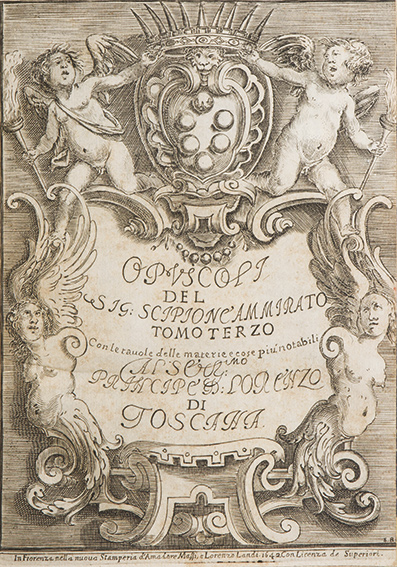 OPVSCOLI
DEL
SIG: SCIPIONE AMMIRATO
TOMO TERZO
Con le tavole delle materie e cose più notabili
AL SER.MO
PRINCIPE D: LORENZO
DI
TOSCANA.
S. B.
In Fiorenza nella nuova Stamperia d'Amadore Massi, e Lorenzo Landi. 1642 Con Licenza de Superiori.